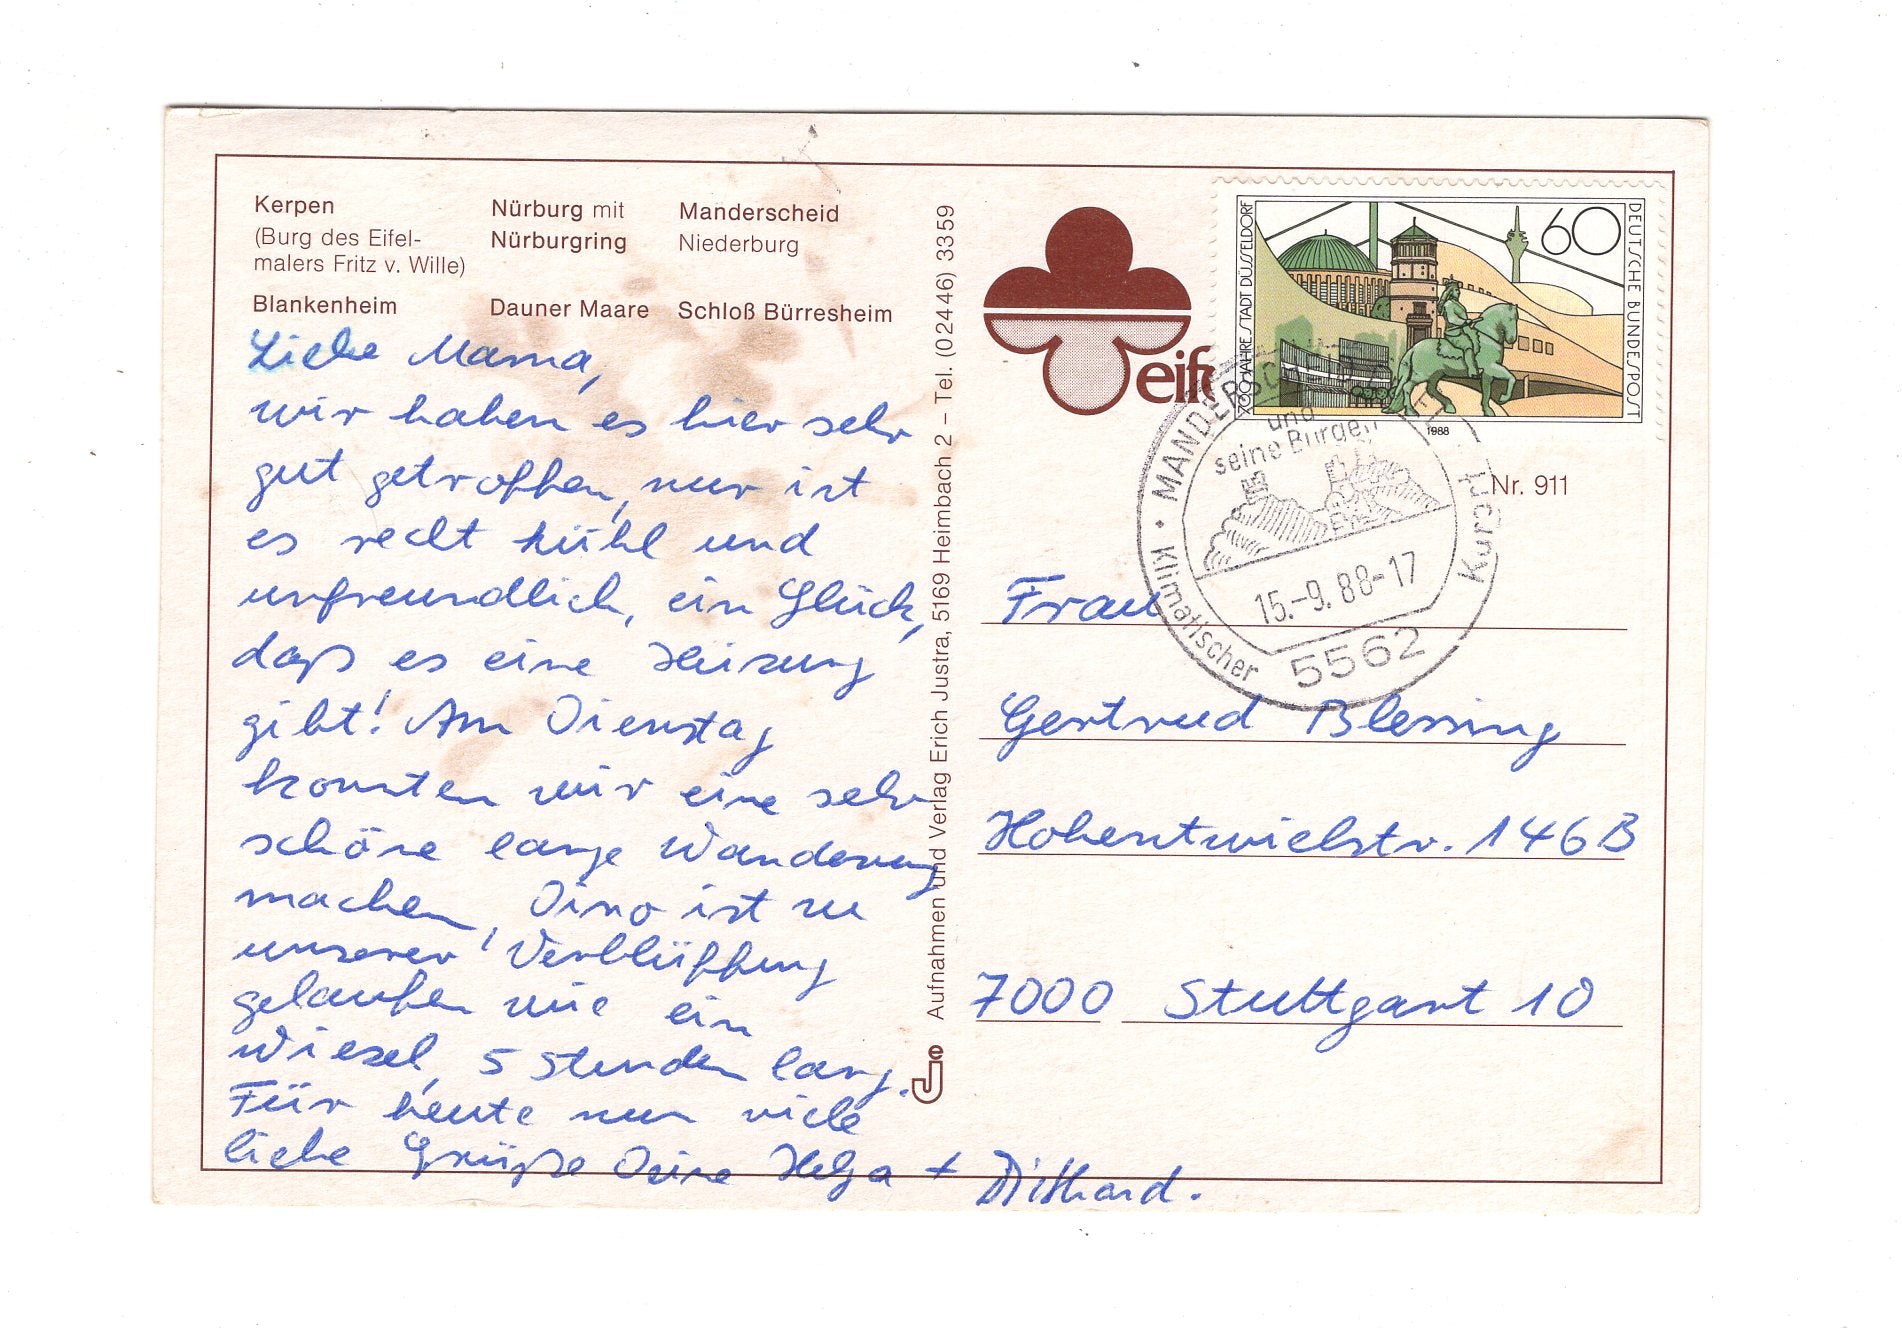 Kerpen
(Burg des Eifel-
malers Fritz v. Wille)
Blankenheim
Nürburg mit
Nürburgring
Dauner Maare
Manderscheid
Niederburg
Schloß Bürresheim
Liebe Mama,
wir haben es hier sehr
gut getroffen, nur ist
es recht kühl und
unfreundlich, ein Glück,
daß es eine Heizung
gibt! Am Dienstag
konnten wir eine sehr
schöne lange Wanderung
machen, Dino ist zu
unserer Verblüffung
gelaufen wie ein
Wiesel, 5 Stunden lang.
Für heute nun viele
liebe Grüße Deine Helga + Dithard.
Aufnahmen und Verlag Erich Justra, 5169 Heimbach 2 – Tel. (02446) 3359
eif
700 JAHRE STADT DÜSSELDORF
60
DEUTSCHE BUNDESPOST
1988
MANDERSC
und
seine Burgen
15.-9.88-17
5562
Klimatischer
Kurort
Nr. 911
Frau
Gertrud Blessing
Hohentwielstr. 146B
7000 Stuttgart 10